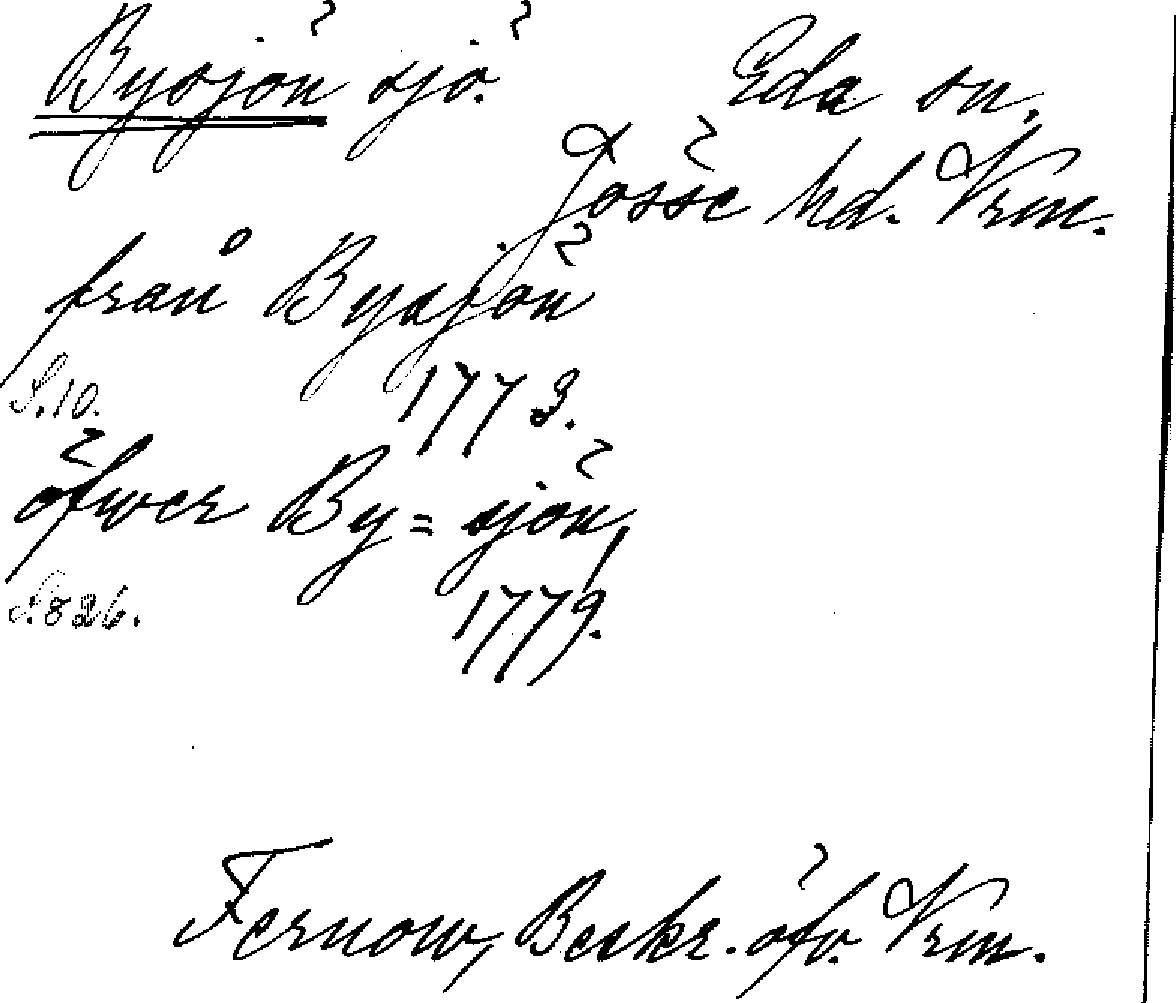 Bysjön sjö. Eda sn.
Jösse hd. Vrm.
från Bysjön
S. 10. 1773.
öfwer By=sjön,
S. 826. 1779.
Fernow, Beskr. öfv. Vrm.